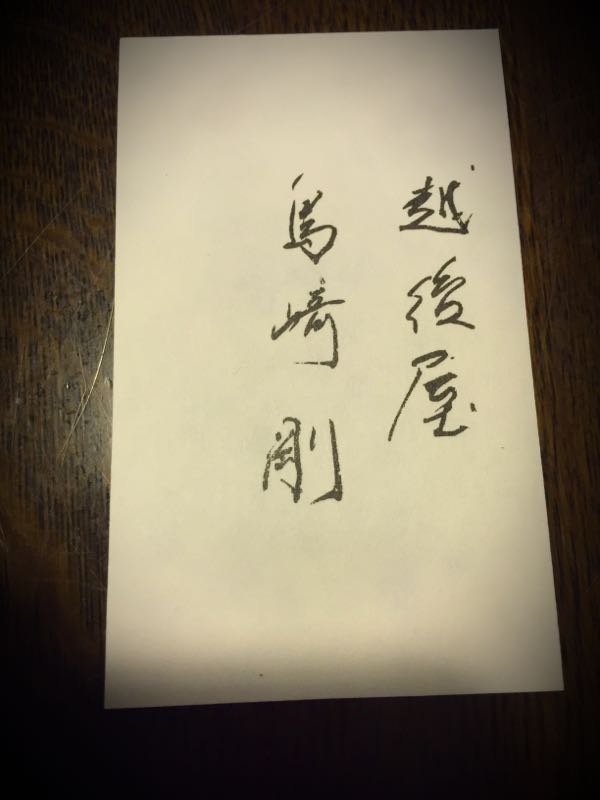 越後屋
島崎剛